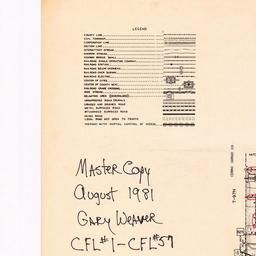 LEGEND
COUNTY LINE
CIVIL TOWNSHIP
CORPORATION LINE
SECTION LINE
INTERMITTENT STREAM
NARROW STREAM
HIGHWAY BRIDGE SMALL
RAILROAD SINGLE OPERATING COMPANY
RAILROAD STATION
RAILROAD BELOW OVERHEAD
RAILROAD OVER SUBWAY
RAILROAD ELECTRIC
CENTER OF CITIES
CENTER OF COUNTY SEAT
RAILROAD GRADE CROSSING
WIDE STREAM
UNIMPROVED ROADS
GRADED AND DRAINED ROAD
METAL SURFACED ROADS
BITUMINOUS SURFACED ROADS
PAVED ROAD
LEGAL ROAD NOT OPEN TO TRAFFIC
HIGHWAY WITH PARTIAL CONTROL OF ACCESS
Master Copy
August 1981
Gary Weaver
CFL#1-CFL#57